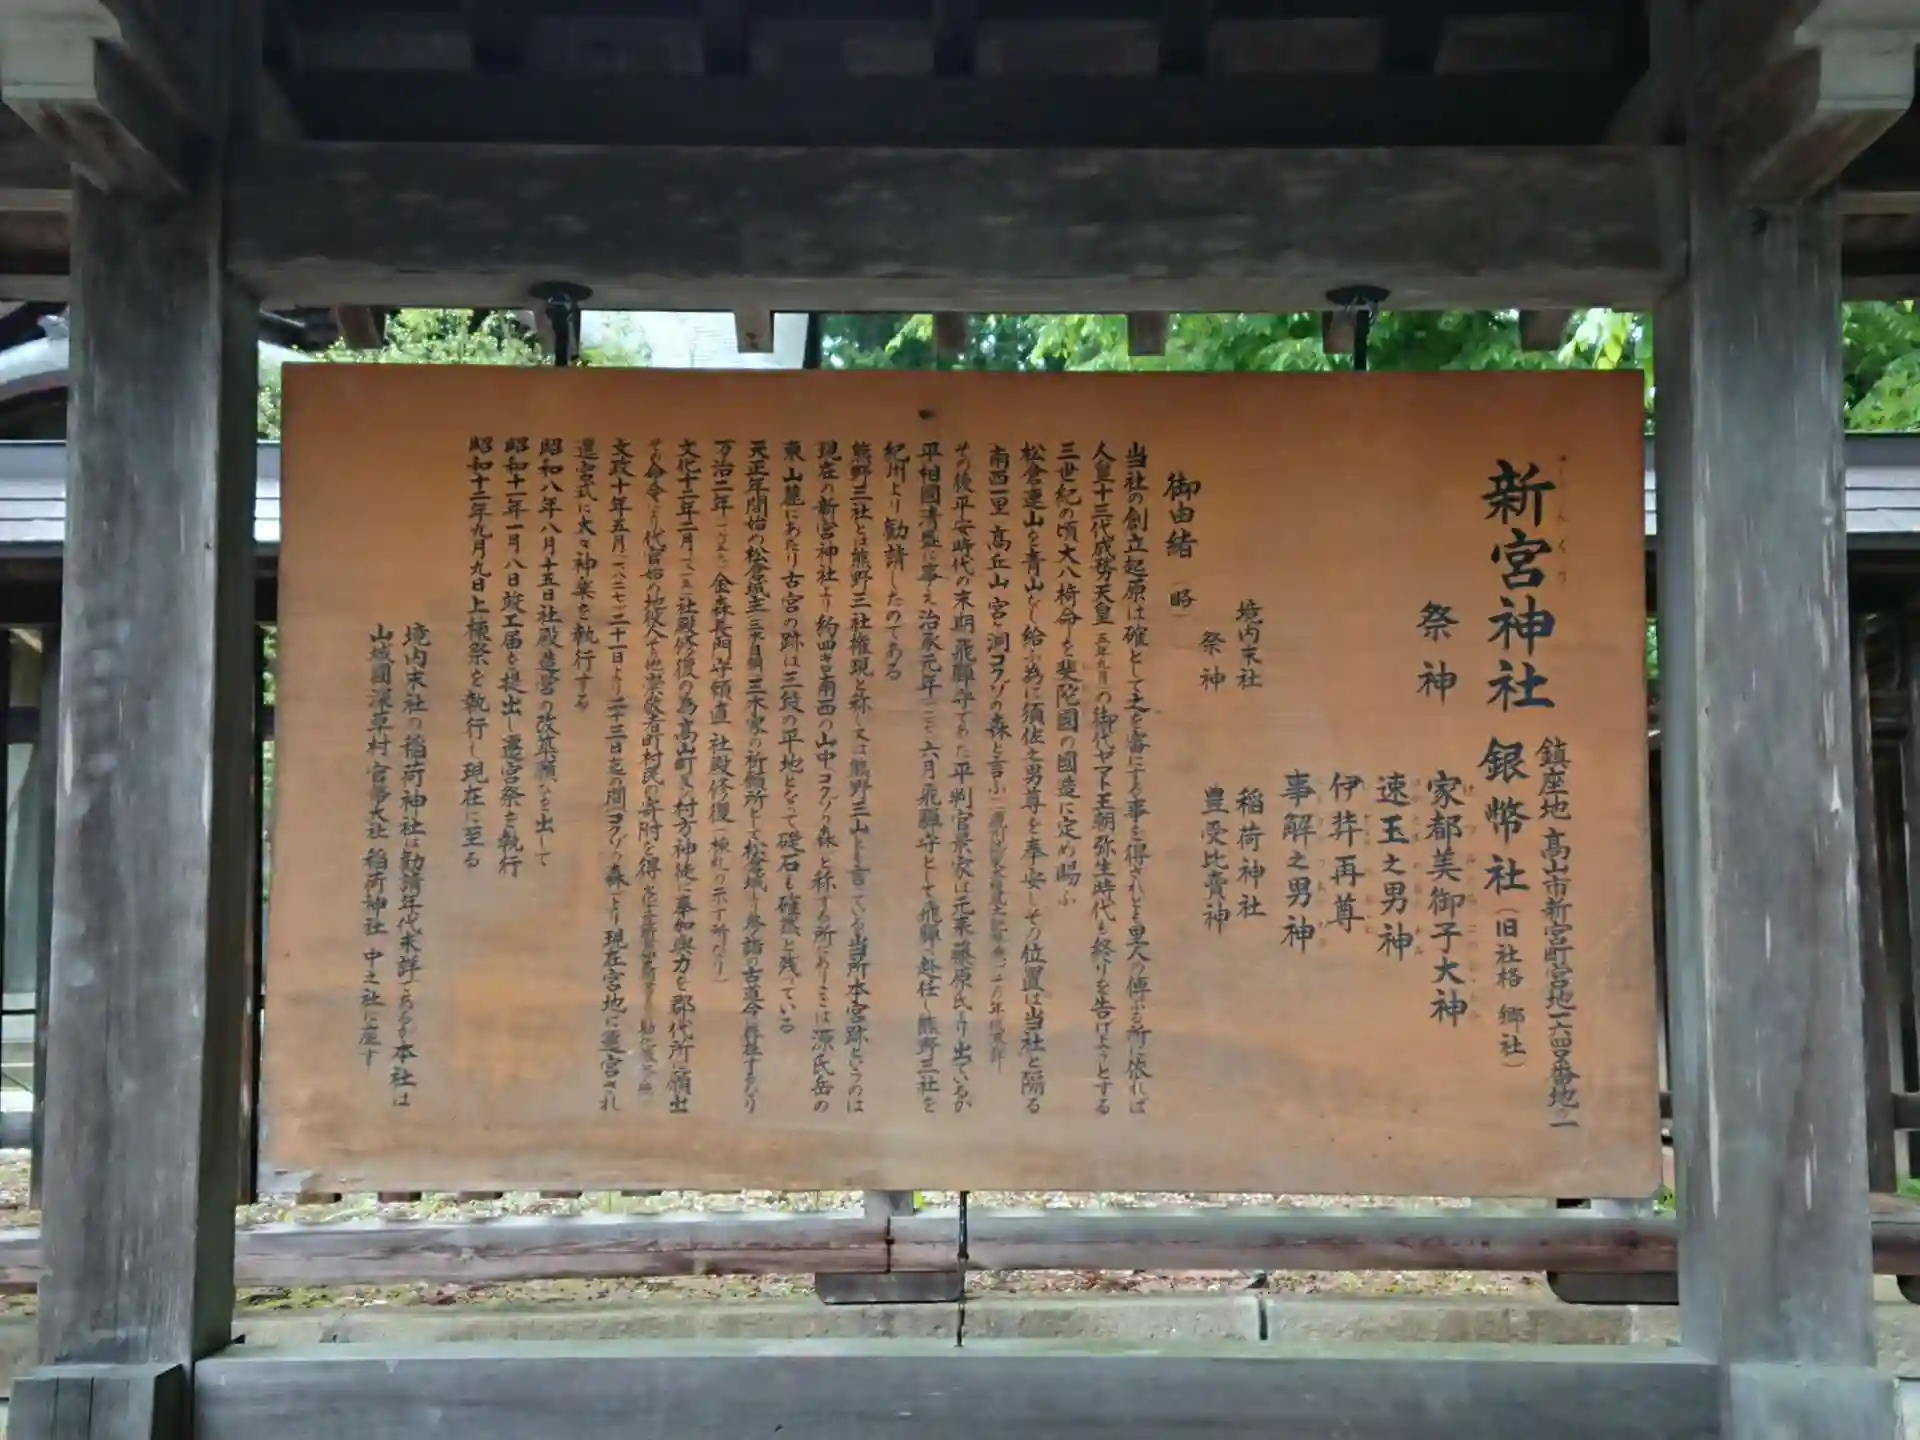 新宮神社
鎮座地 高山市新宮町宮地一六四〇番地ノ一
銀幣社(旧社格 郷社)
祭神
家都美御子大神
速玉之男神
伊弉再尊
事解之男神
境内末社
稲荷神社
祭神
豊受比賣神
御由緒(略)
当社の創立起原は確として之を審にする事を得されども里人の傳ふる所に依れば
人皇十三代成務天皇 五年九月の御代ヤマト王朝弥生時代も終りを告げようとする
三世紀の頃大八椅命を斐陀國の國造に定め賜ふ
松倉連山を青山なし給ふ為に須佐之男尊を奉安しその位置は当社と隔る
南西一里 高丘山 宮ヶ洞コクゾの森と言ふ
その後平安時代の末期飛騨守であった平判官景家は元来藤原氏より出ているが
平相國清盛に事え治承元年 六月飛騨守として飛騨に赴任し熊野三社を
紀州より勧請したのである
熊野三社とは熊野三社権現と称し又は熊野三山とも言っている当所本宮跡というのは
現在の新宮神社より約四キロ南西の山中コクゾの森と称する所にありここは源氏岳の
東山麓にあたり古宮の跡は三段の平地となって礎石も確然と残っている
天正年間始の松倉城主 三木自綱 三木家の祈願所として松倉城より参詣の古道今に存在するなり
万治二年 金森長門守頼直 社殿修復(棟札の示す所なり)
文化十二年二月 社殿修復の為高山町及村方神徒に奉加與力を郡代所に願出
その命令により代官始め地役人サ他崇敬者町村民の寄附を得
文政十年五月(一八二七)二十一日より二十三日迄の間コクゾの森より現在宮地に遷宮され
遷宮式に太々神楽を執行する
昭和八年八月十五日社殿造営の改築願ひを出して
昭和十一年一月八日竣工届を提出し遷宮祭を執行
昭和十二年九月九日上棟祭を執行し現在に至る
境内末社の稲荷神社は勧請年代未詳なるも本社は
山城國深草村官幣大社 稲荷神社 中之社に座す